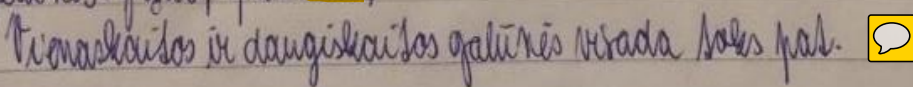 Vienaskaitos ir daugiskaitos galūnės visada toks pat.